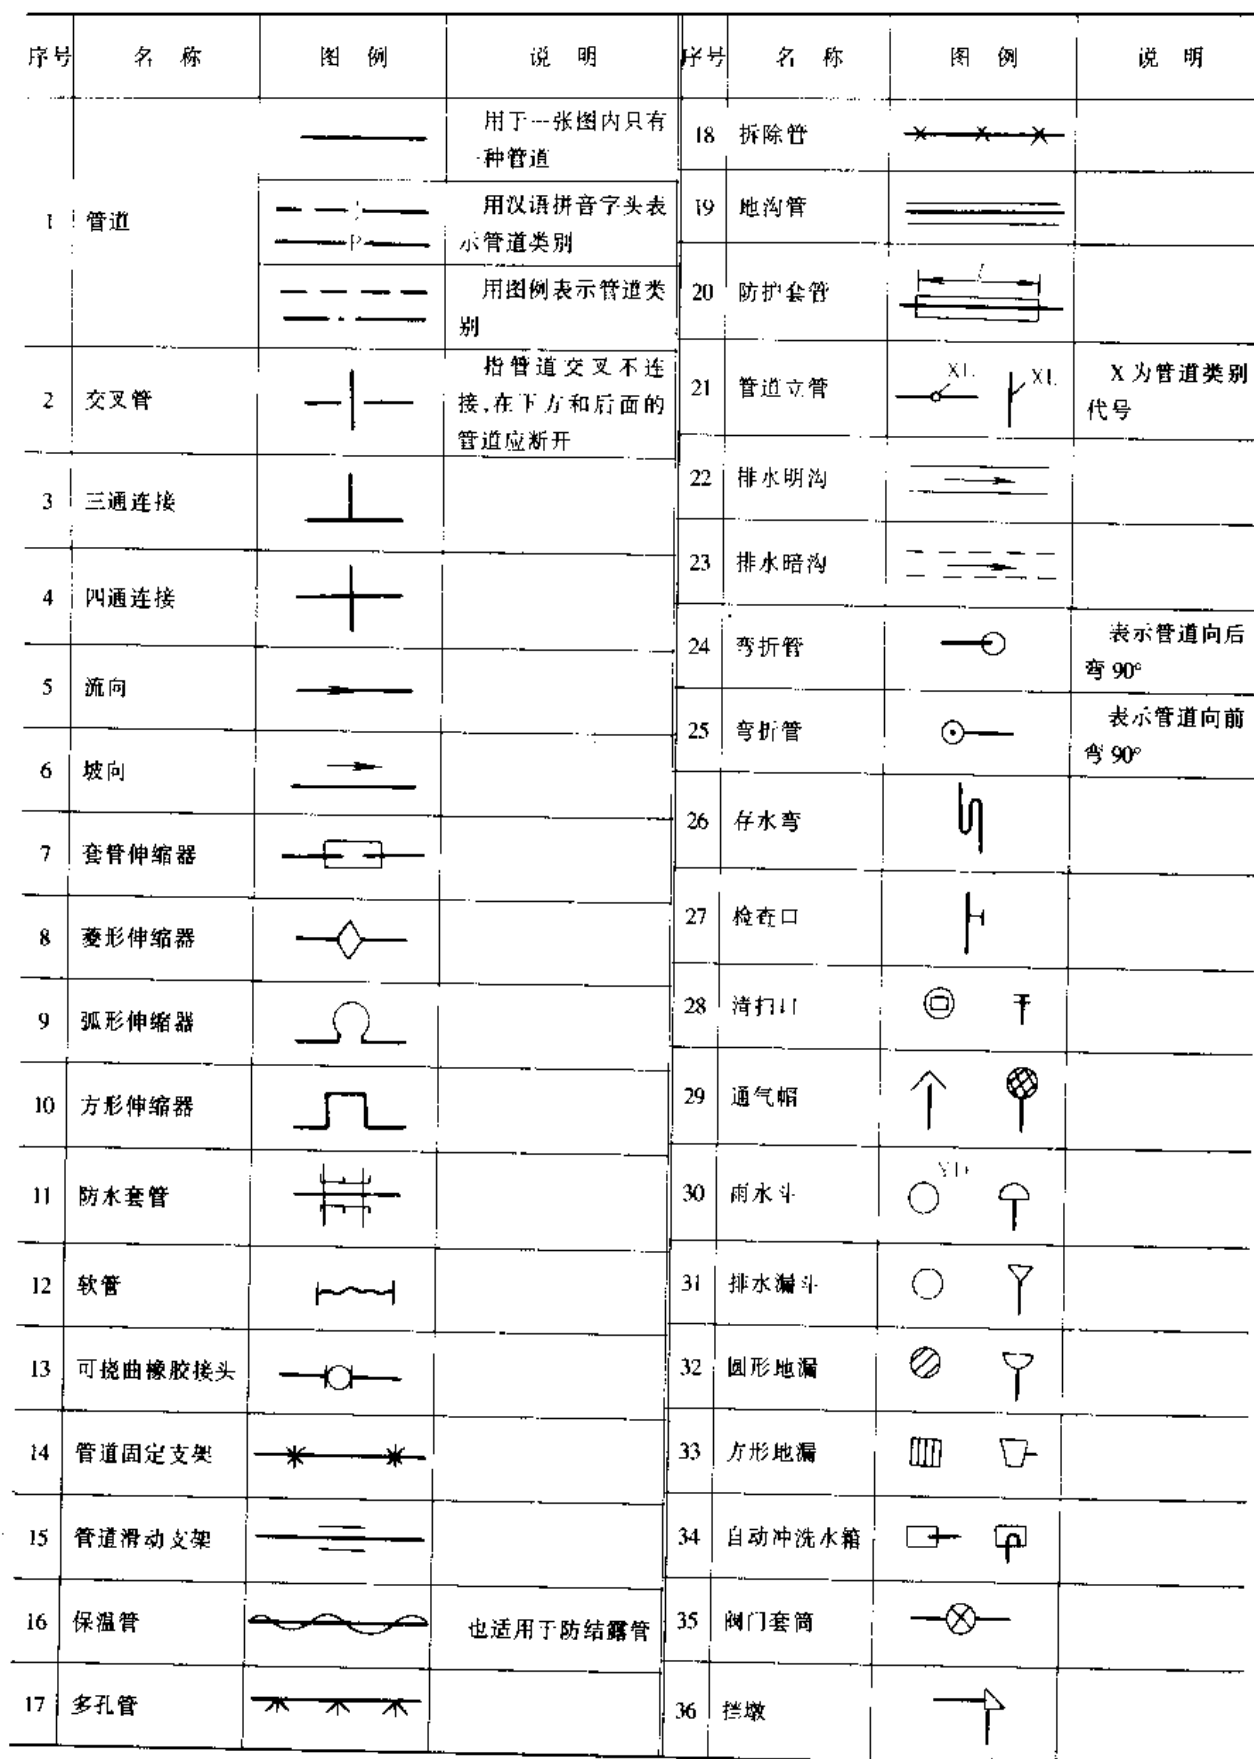 序号 名称 图例 说明 序号 名称 图例 说明
1 管道
用于一张图内只有
一种管道
用汉语拼音字头表
示管道类别
P
用图例表示管道类
别
2 交叉管
指管道交叉不连
接,在下方和后面的
管道应断开
3 三通连接
4 四通连接
5 流向
6 坡向
7 套管伸缩器
8 菱形伸缩器
9 弧形伸缩器
10 方形伸缩器
11 防水套管
12 软管
13 可挠曲橡胶接头
14 管道固定支架
15 管道滑动支架
16 保温管 也适用于防结露管
17 多孔管
18 拆除管
19 地沟管
20 防护套管
21 管道立管 XL XL
X为管道类别
代号
22 排水明沟
23 排水暗沟
24 弯折管
表示管道向后
弯90°
25 弯折管
表示管道向前
弯90°
26 存水弯
27 检查口
28 清扫口
29 通气帽
30 雨水斗
31 排水漏斗
32 圆形地漏
33 方形地漏
34 自动冲洗水箱
35 阀门套筒
36 挡墩